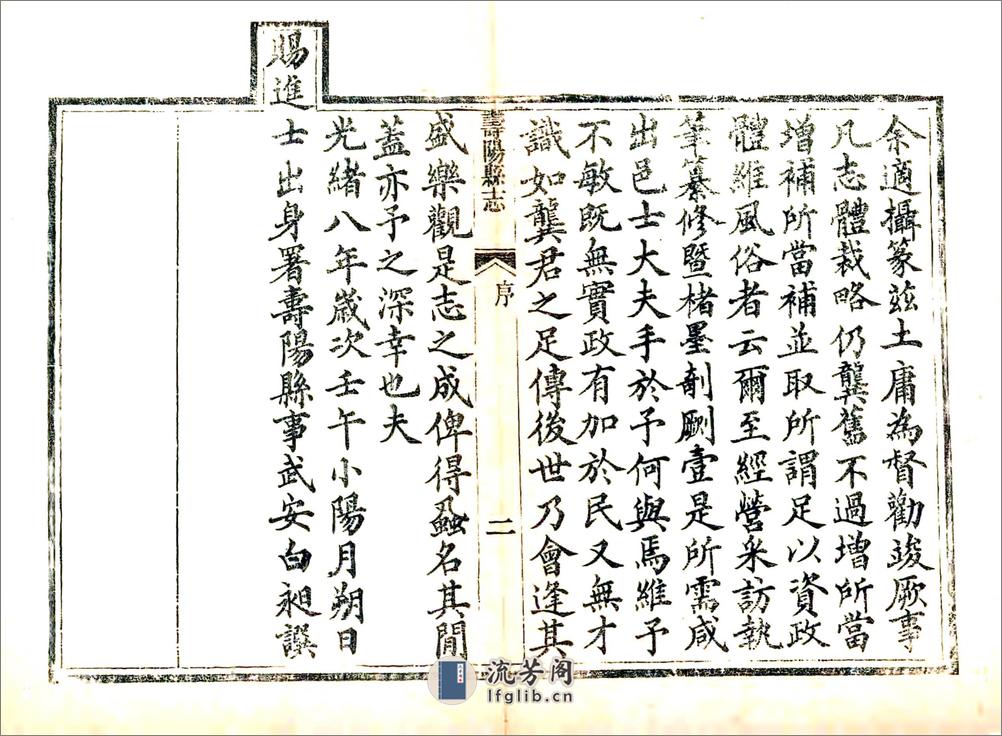 余適攝篆茲土庸為督勸竣厥事
凡志體裁略仍龔舊不過增所當
增補所當補並取所謂足以資政
體維風俗者云爾至經營采訪執
筆纂修暨楮墨剞劂壹是所需咸
出邑士大夫手於予何與焉維予
不敏既無實政有加於民又無才
識如龔君之足傳後世乃會逢其
壽陽縣志
序
二
盛樂觀是志之成俾得蝨名其間
蓋亦予之深幸也夫
光緒八年歲次壬午小陽月朔日
賜進
士出身署壽陽縣事武安白昶譔
流芳阁
lfglib.cn